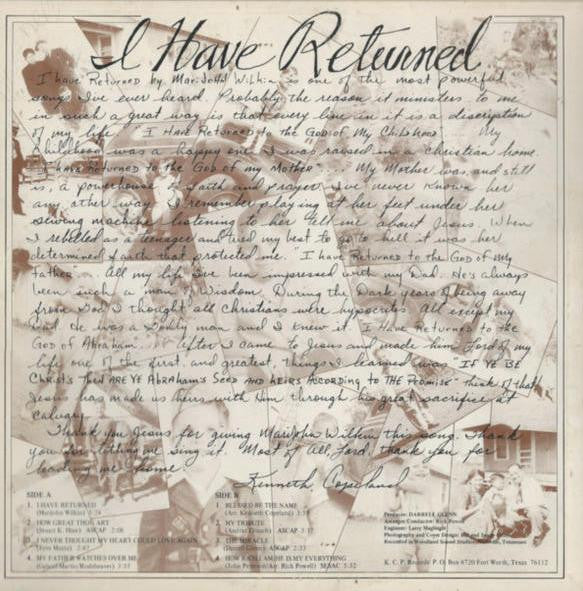 I Have Returned
I have Returned by Marijohn Wilkin is one of the most powerful
songs I've ever heard. Probably the reason it ministers to me
in such a great way is that every line in it is a description
of my life. I Have Returned to the God of My Childhood .... My
Childhood was a happy one. I was raised in a Christian home.
I have Returned to the God of my Mother .... My Mother was, and still
is, a powerhouse of faith and prayer. I've never known her
any other way. I remember playing at her feet under her
sewing machine listening to her tell me about Jesus. When
I rebelled as a teenager and tried my best to go to hell it was her
determined faith that protected me. "I have Returned to the God of my
father" .. All my life I've been impressed with my Dad. He's always
been such a "man" of Wisdom. During the Dark years of being away
from God I thought all Christians were hypocrites. All except my
Dad. He was a Godly man and I knew it. I Have Returned to the
God of Abraham ... After I came to Jesus and made him Lord of my
life one of the first, and greatest, things I learned was "IF YE BE
CHRISTS THEN ARE YE ABRAHAM'S SEED AND HEIRS ACCORDING TO THE PROMISE" Think of that!
Jesus has made us heirs with Him through his great sacrifice at
Calvary.
Thank you Jesus for giving Marijohn Wilkin this song. Thank
you for letting me sing it. Most of all, Lord, thank you for
leading me home.
Kenneth Copeland
SIDE A
1. I HAVE RETURNED
(Marijohn Wilkin)
2. HOW GREAT THOU ART
(Stuart K. Hine) ASCAP 2:08
3. I NEVER THOUGHT MY HEART COULD LOVE AGAIN
2:47
4. MY FATHER WATCHES OVER ME
SIDE B
1. BLESSED BE THE NAME
(Arr. Kenneth Copeland)
2. MY TRIBUTE
(Andrae Crouch) ASCAP
3. THE MIRACLE
ASCAP 2:33
4. HOW BIG IS MY EVERYTHING
(Arr. Rick Powell) SESAC 5:32
Producer: DARRELL GLENN
Arranger Conductor: Rick Powell
Engineer: Larry
Photography and Cover Design:
Recorded at Woodland Sound Studios, Nashville, Tennessee
K. C. P. Records P. O. Box 8720 Fort Worth, Texas 76112